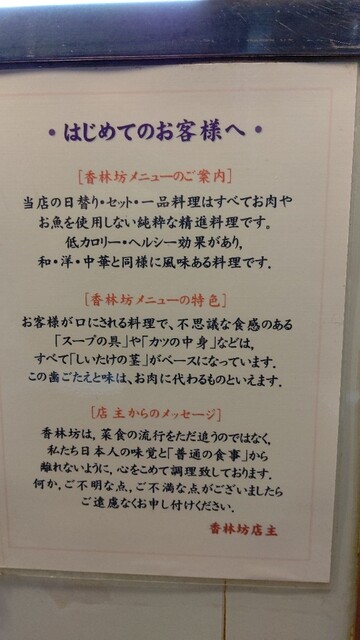 ・はじめてのお客様へ・
[香林坊メニューのご案内]
当店の日替り・セット・一品料理はすべてお肉や
お魚を使用しない純粋な精進料理です。
低カロリー・ヘルシー効果があり,
和・洋・中華と同様に風味ある料理です.
[香林坊メニューの特色]
お客様が口にされる料理で、不思議な食感のある
「スープの具」や「カツの中身」などは,
すべて「しいたけの茎」がベースになっています.
この歯ごたえと味は、お肉に代わるものといえます.
[店主からのメッセージ]
香林坊は, 菜食の流行をただ追うのではなく,
私たち日本人の味覚と「普通の食事」から
離れないように, 心をこめて調理致しております.
何か, ご不明な点, ご不満な点がございましたら
ご遠慮なくお申し付けください.
香林坊店主